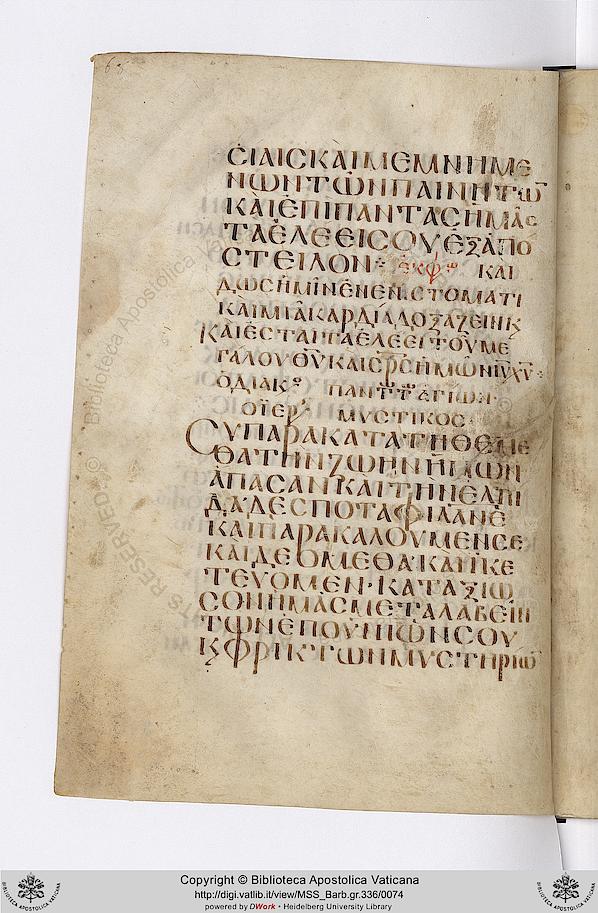 ϹΙΑΙϹΚΑΙΜΕΜΝΗΜΕ
ΝΩΝΤΩΝΠΑΙΝΗΤΩ̅
ΚΑΙΕΠΙΠΑΝΤΑϹΗΜΑϹ
ΤΑΕΛΕΕΙϹΟΥΕΞΑΠΟ
ϹΤΕΙΛΟΝ· ἐκφω ΚΑΙ
ΔΩϹΗΜΙΝΕΝΕΝΙϹΤΟΜΑΤΙ
ΚΑΙΜΙΑΚΑΡΔΙΑΔΟΞΑΖΕΙΝϗ
ΚΑΙΕϹΤΑΙΤΑΕΛΕΕΙΤΟΥΜΕ
ΓΑΛΟΥΘ̅Υ̅ΚΑΙϹΡ̅Ϲ̅ΗΜΩΝΙ̅Υ̅Χ̅Υ̅
ΟΔΙΑΚο ΠΑΝΤ ΤΑΓΙΩΝ
ΟΙΕΡ ΜΥϹΤΙΚΟϹ
ϹΥΠΑΡΑΚΑΤΑΤΗΘΕΜΕ
ΘΑΤΗΝΖΩΗΝΗΜΩΝ
ΑΠΑϹΑΝΚΑΙΤΗΝΕΛΠΙ
ΔΑΔΕϹΠΟΤΑΦΙΛΑΝΕ
ΚΑΙΠΑΡΑΚΑΛΟΥΜΕΝϹΕ
ΚΑΙΔΕΟΜΕΘΑΚΑΙΙΚΕ
ΤΕΥΟΜΕΝ·ΚΑΤΑΞΙΩ
ϹΟΝΗΜΑϹΜΕΤΑΛΑΒΕΙΝ
ΤΩΝΕΠΟΥΝΙΩΝϹΟΥ
ϗΦΡΙΚΤΩΝΜΥϹΤΗΡΙΩ̅
Copyright © Biblioteca Apostolica Vaticana
http://digi.vatlib.it/view/MSS_Barb.gr.336/0074
powered by DWork • Heidelberg University Library